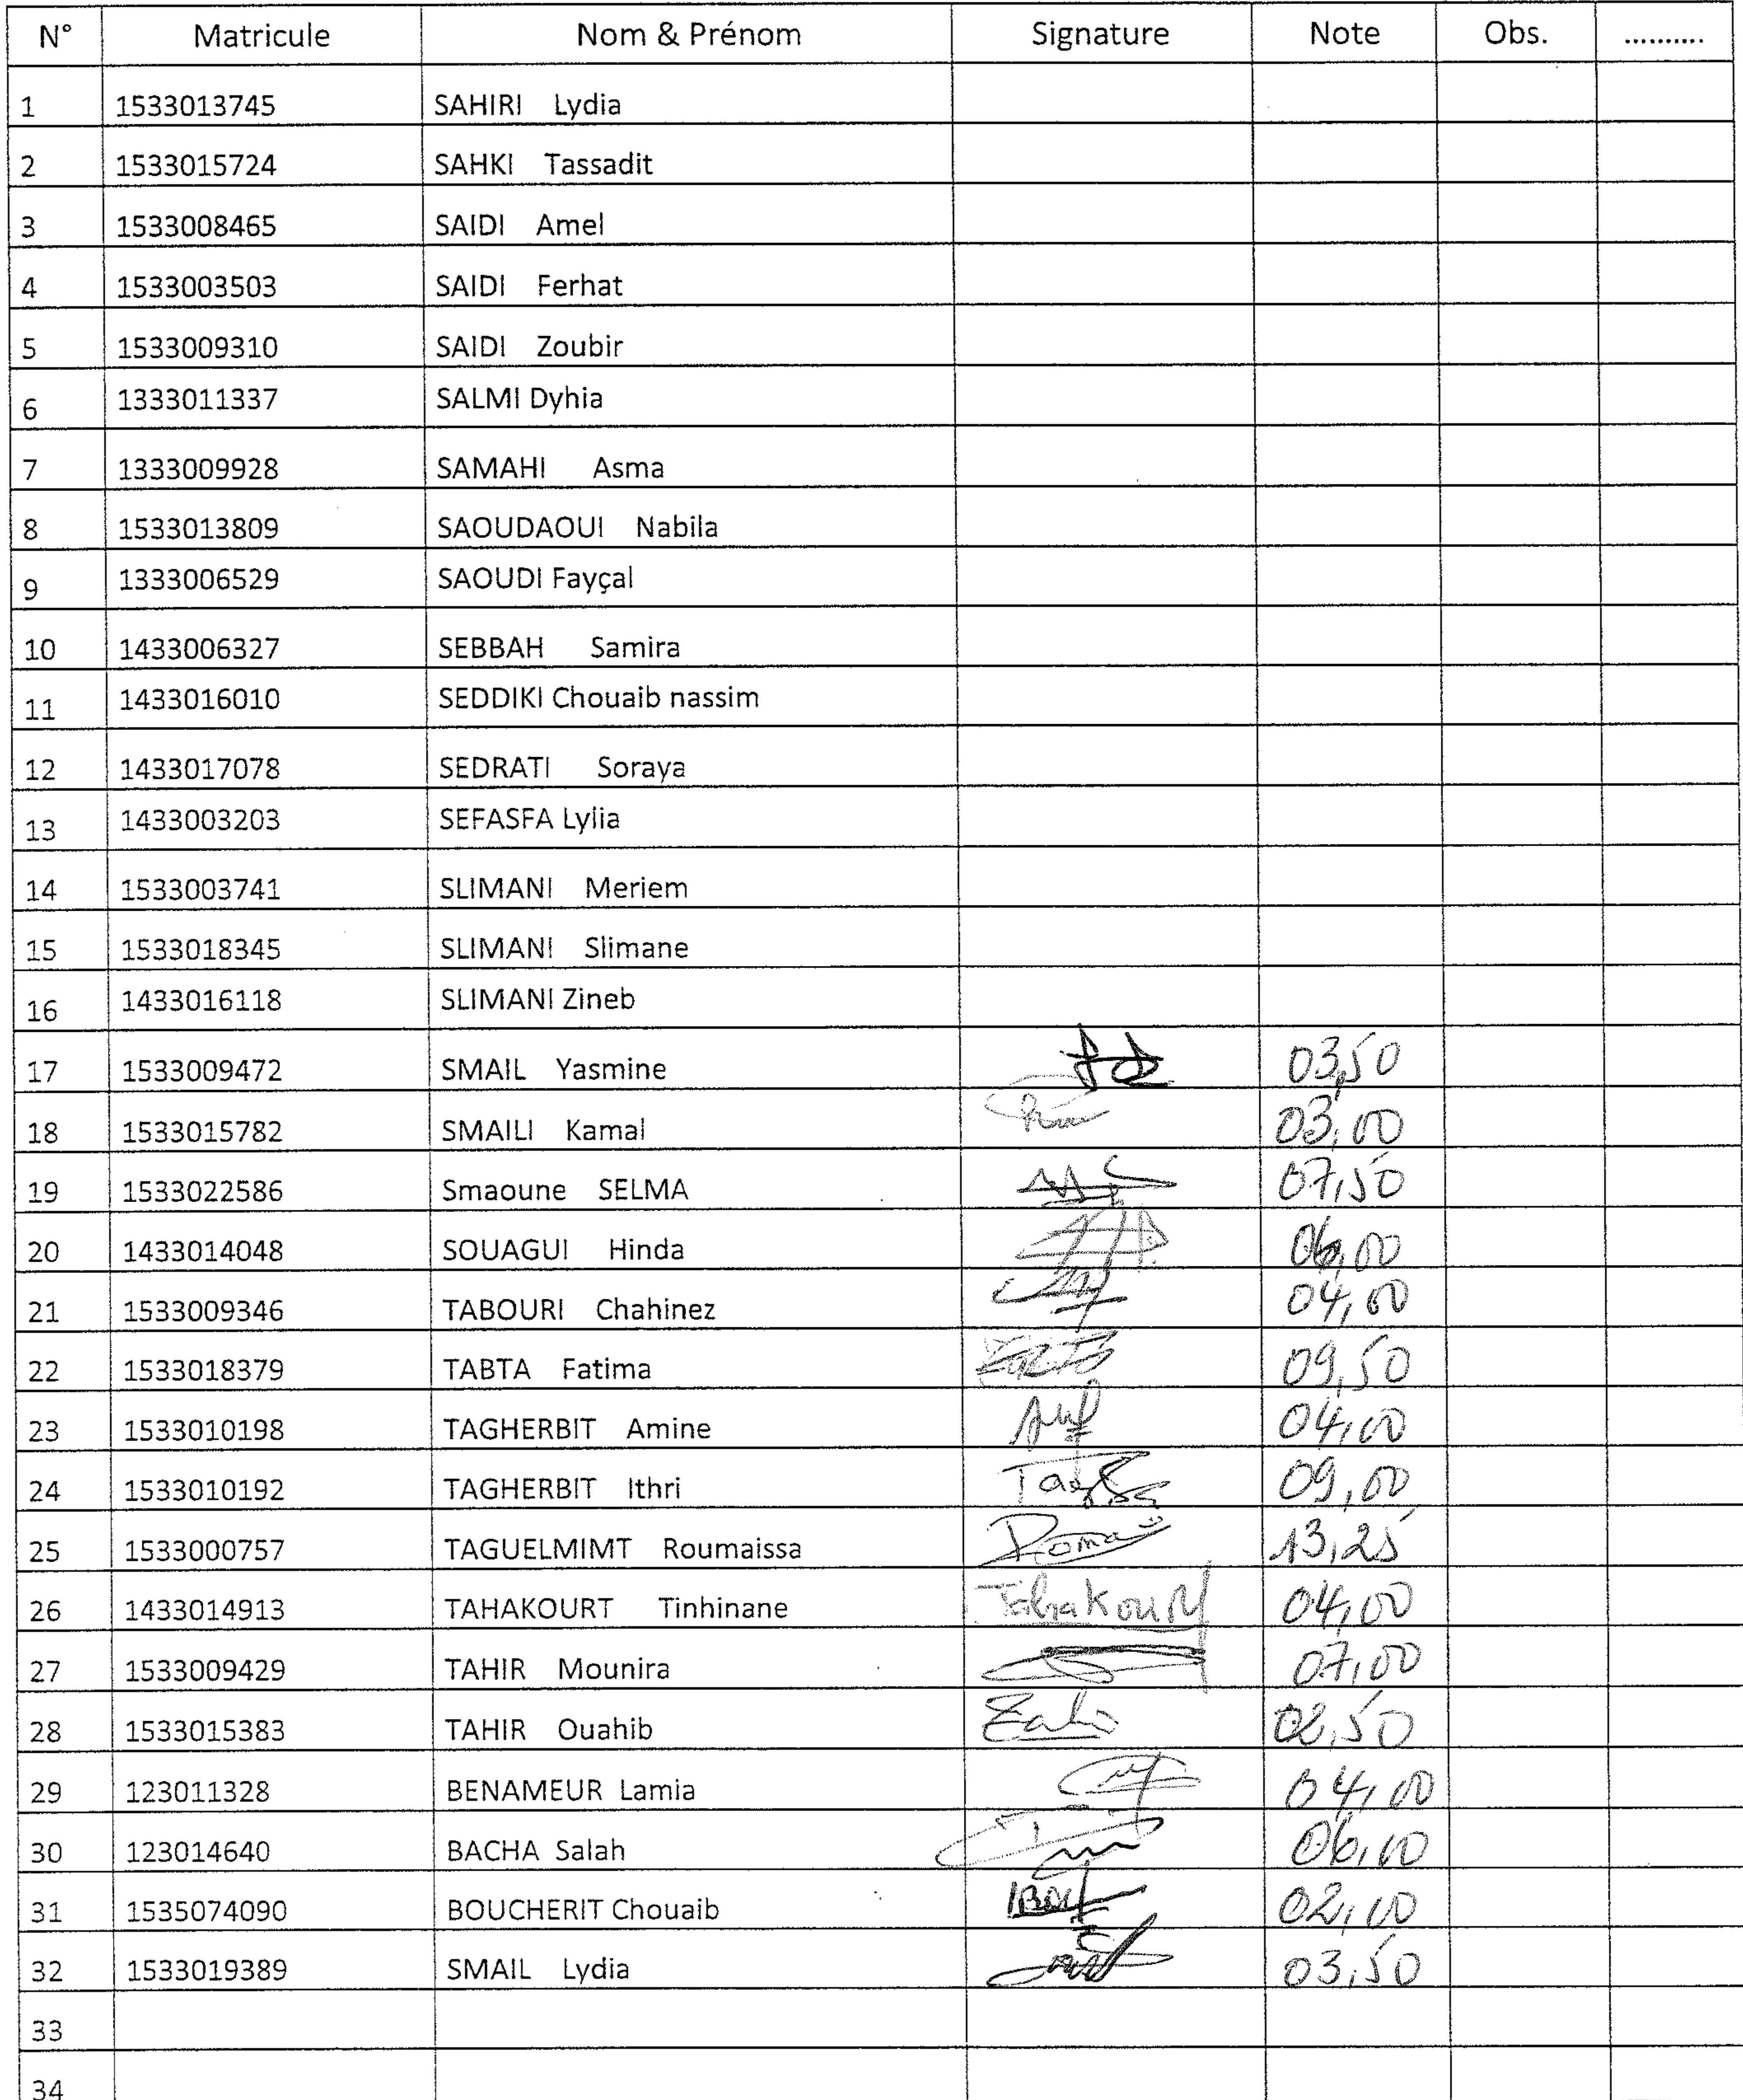 N° Matricule Nom & Prénom Signature Note Obs. ..........
1 1533013745 SAHIRI Lydia
2 1533015724 SAHKI Tassadit
3 1533008465 SAIDI Amel
4 1533003503 SAIDI Ferhat
5 1533009310 SAIDI Zoubir
6 1333011337 SALMI Dyhia
7 1333009928 SAMAHI Asma
8 1533013809 SAOUDAOUI Nabila
9 1333006529 SAOUDI Fayçal
10 1433006327 SEBBAH Samira
11 1433016010 SEDDIKI Chouaib nassim
12 1433017078 SEDRATI Soraya
13 1433003203 SEFASFA Lylia
14 1533003741 SLIMANI Meriem
15 1533018345 SLIMANI Slimane
16 1433016118 SLIMANI Zineb
17 1533009472 SMAIL Yasmine 03,50
18 1533015782 SMAILI Kamal 03,00
19 1533022586 Smaoune SELMA 07,50
20 1433014048 SOUAGUI Hinda 06,00
21 1533009346 TABOURI Chahinez 04,00
22 1533018379 TABTA Fatima 09,50
23 1533010198 TAGHERBIT Amine 04,00
24 1533010192 TAGHERBIT Ithri 09,00
25 1533000757 TAGUELMIMT Roumaissa 13,25
26 1433014913 TAHAKOURT Tinhinane Tahakourt 04,00
27 1533009429 TAHIR Mounira 07,00
28 1533015383 TAHIR Ouahib 02,50
29 123011328 BENAMEUR Lamia 04,00
30 123014640 BACHA Salah 06,00
31 1535074090 BOUCHERIT Chouaib 02,00
32 1533019389 SMAIL Lydia 03,50
33
34